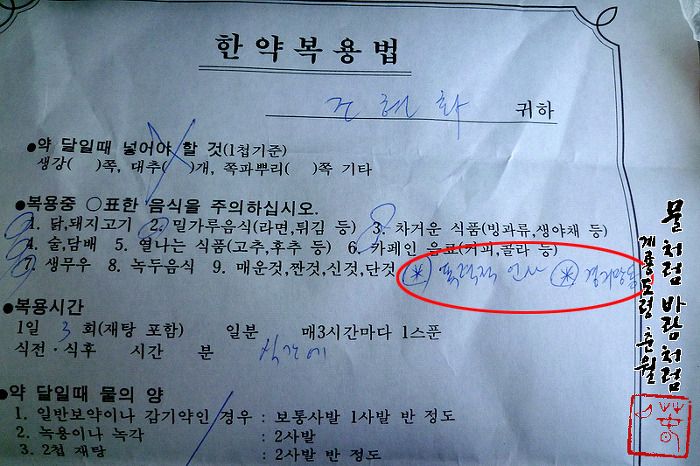 한약복용법
조현화 귀하
●약 달일때 넣어야 할 것(1첩기준)
생강( )쪽, 대추( )개, 쪽파뿌리( )쪽 기타
●복용중 ○표한 음식을 주의하십시오.
1. 닭,돼지고기 2. 밀가루음식(라면,튀김 등) 3. 차거운 식품(빙과류,생야채 등)
4. 술,담배 5. 열나는 식품(고추,후추 등) 6. 카페인 음료(커피,콜라 등)
7. 생무우 8. 녹두음식 9. 매운것,짠것,신것,단것
●복용시간
1일 3 회(재탕 포함) 일분 매3시간마다 1스푼
식전·식후 시간 분 식간에
●약 달일때 물의 양
1. 일반보약이나 감기약인 경우 : 보통사발 1사발 반 정도
2. 녹용이나 녹각 : 2사발
3. 2첩 재탕 : 2사발 반 정도
물처럼 바람처럼
계룡도령 춘월